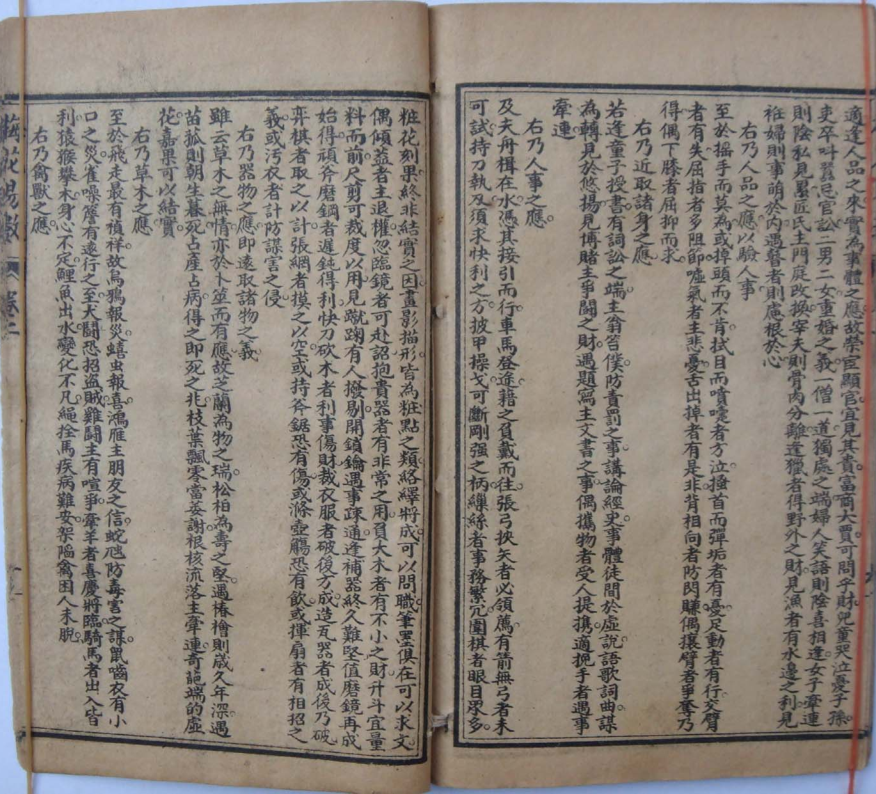 適逢人品之來實為事體之應故榮宦顯官宜見其貴富商大賈可問乎財兒童哭泣憂子孫
吏卒叫囂忌官訟二男二女重婚之義一僧一道獨處之端婦人笑語則陰喜相逢女子牽連
則陰私見累匠氏主門庭改換宰夫則骨肉分離逢獵者得野外之財見漁者有水邊之利見
妊婦則事萌於內遇瞽者則慮根於心
右乃人品之應以驗人事
至於搖手而莫為或掉頭而不肯拭目而噴嚏者方泣搔首而彈垢者有憂足動者有行交臂
者有失屈指者多阻節噓氣者主悲憂舌出掉者有是非背相向者防閃賺偶攘臂者爭奪乃
得偶下膝者屈抑而求
右乃近取諸身之應
若逢童子授書有詞訟之端主翁笞僕防責罰之事講論經史事體徒間於虛說語歌詞曲謀
為轉見於悠揚見博賭主爭鬪之財遇題寫主文書之事偶攜物者受人提携適挽手者遇事
牽連
右乃人事之應
及夫舟楫在水憑其接引而行車馬登途藉之負戴而往張弓挾矢者必領薦有箭無弓者未
可試持刀執及須求快利之方披甲操戈可斷剛强之柄繅絲者事務繁冗圍棋者眼目眾多
粧花刻果終非結實之因畫影描形皆為粧點之類絡繹將成可以問職筆墨俱在可以求文
偶傾蓋者主退權忽臨鏡者可赴詔抱貴器者有非常之用負大木者有不小之財升斗宜量
料而前尺剪可裁度以用見蹴踘有人撥剔開鎖鑰遇事疎通逢補器終久難堅值磨鏡再成
始得頑斧磨鋼者遲鈍得利快刀砍木者利事傷財裁衣服者破後方成造瓦器者成後乃破
弈棋者取之以計張網者摸之以空或持斧鋸恐有傷或滌壺觴恐有飲或揮扇者有相招之
義或污衣者計防謀害之侵
右乃器物之應即遠取諸物之義
雖云草木之無情亦於卜筮而有應故芝蘭為物之瑞松柏為壽之堅遇椿檜則歲久年深遇
苗菰則朝生暮死占產占病得之即死之兆枝葉飄零當萎謝根核流落主牽連奇葩端的虛
花嘉果可以結實
右乃草木之應
至於飛走最有禎祥故烏鴉報災蟢虫報喜鴻雁主朋友之信蛇虺防毒害之謀鼠嚙衣有小
口之災雀噪簷有遠行之至犬鬪恐招盜賊雞鬪主有喧爭牽羊者喜慶將臨騎馬者出入皆
利猿猴攀木身心不定鯉魚出水變化不凡繩拴馬疾病難安架陷禽困人未脫
右乃禽獸之應
梅花易數 卷二